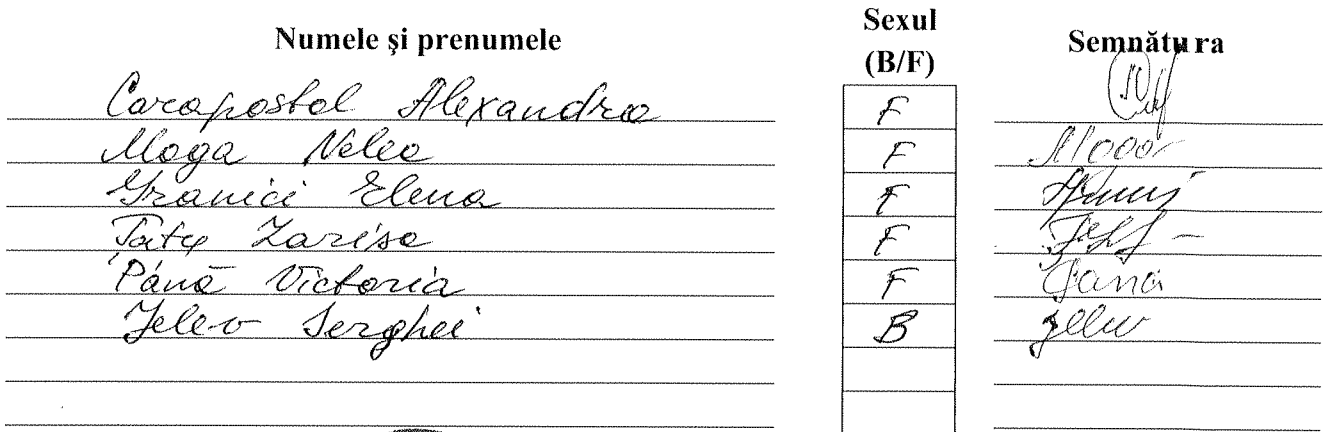 Numele și prenumele Sexul (B/F) Semnătura
Carapostol Alexandra F
Moga Nelea F Moga
Granici Elena F
Tatu Larisa F
Pănă Victoria F Pană
Jelev Serghei B Jelev